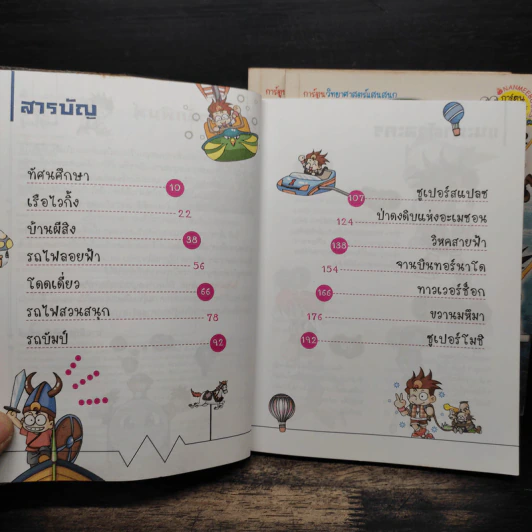 สารบัญ
ทัศนศึกษา 10
เรือไวกิ้ง 22
บ้านผีสิง 38
รถไฟลอยฟ้า 56
โดดเดี่ยว 66
รถไฟสวนสนุก 78
รถบัมป์ 92
การ์ตูนวิทยาศาสตร์แสนสนุก
107 ซูเปอร์สแปลช
124 ป่าดงดิบแห่งอะเมซอน
138 วิหคสายฟ้า
154 จานบินทอร์นาโด
166 ทาวเวอร์ช็อก
176 ขวานมหึมา
192 ซูเปอร์โมชิ